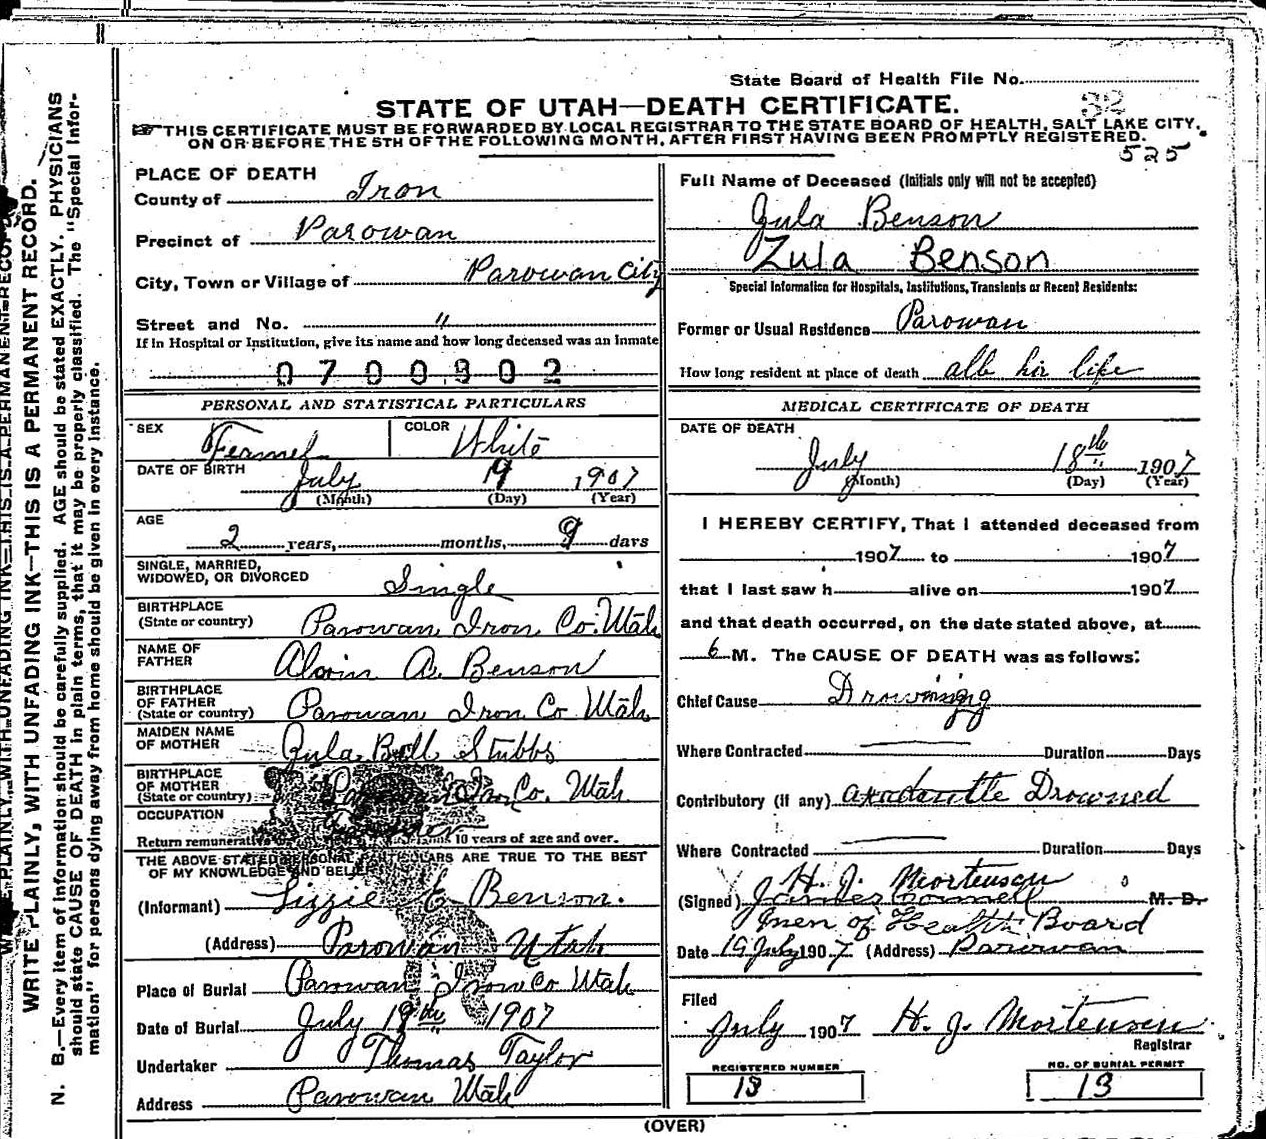 State Board of Health File No.
STATE OF UTAH—DEATH CERTIFICATE.
32
THIS CERTIFICATE MUST BE FORWARDED BY LOCAL REGISTRAR TO THE STATE BOARD OF HEALTH, SALT LAKE CITY,
ON OR BEFORE THE 5TH OF THE FOLLOWING MONTH, AFTER FIRST HAVING BEEN PROMPTLY REGISTERED.
525
WRITE PLAINLY, WITH UNFADING INK—THIS IS A PERMANENT RECORD.
N. B.—Every item of information should be carefully supplied. AGE should be stated EXACTLY. PHYSICIANS
should state CAUSE OF DEATH in plain terms, that it may be properly classified. The "Special Infor-
mation" for persons dying away from home should be given in every instance.
PLACE OF DEATH
County of Iron
Precinct of Parowan
City, Town or Village of Parowan City
Street and No. "
If in Hospital or Institution, give its name and how long deceased was an Inmate
0700302
PERSONAL AND STATISTICAL PARTICULARS
SEX Femel COLOR White
DATE OF BIRTH July 19 1907
(Month) (Day) (Year)
AGE
2 years, months, 9 days
SINGLE, MARRIED,
WIDOWED, OR DIVORCED Single
BIRTHPLACE
(State or country) Parowan Iron Co. Utah
NAME OF
FATHER Alvin A. Benson
BIRTHPLACE
OF FATHER
(State or country) Parowan Iron Co Utah
MAIDEN NAME
OF MOTHER Zula Bell Stubbs
BIRTHPLACE
OF MOTHER
(State or country) Iron Co. Utah
OCCUPATION
Return remunerative 10 years of age and over.
THE ABOVE STATED PERSONAL PARTICULARS ARE TRUE TO THE BEST
OF MY KNOWLEDGE AND BELIEF
(Informant) Lizzie E Benson.
(Address) Parowan Utah
Place of Burial Parowan Iron Co Utah
Date of Burial July 19th 1907
Undertaker Thomas Taylor
Address Parowan Utah
Full Name of Deceased (Initials only will not be accepted)
Zula Benson
Zula Benson
Special Information for Hospitals, Institutions, Transients or Recent Residents:
Former or Usual Residence Parowan
How long resident at place of death all hir life
MEDICAL CERTIFICATE OF DEATH
DATE OF DEATH
July 18th 1907
(Month) (Day) (Year)
I HEREBY CERTIFY, That I attended deceased from
1907 to 1907
that I last saw h alive on 1907
and that death occurred, on the date stated above, at
6 M. The CAUSE OF DEATH was as follows:
Chief Cause Drowning
Where Contracted Duration Days
Contributory (if any) Drowned
Where Contracted Duration Days
H. J. Mortensen
(Signed) James Connell M. D.
men of Health Board
Date 19 July 1907 (Address) Parowan
Filed
July 1907 H. J. Mortensen
Registrar
REGISTERED NUMBER
13
NO. OF BURIAL PERMIT
13
(OVER)